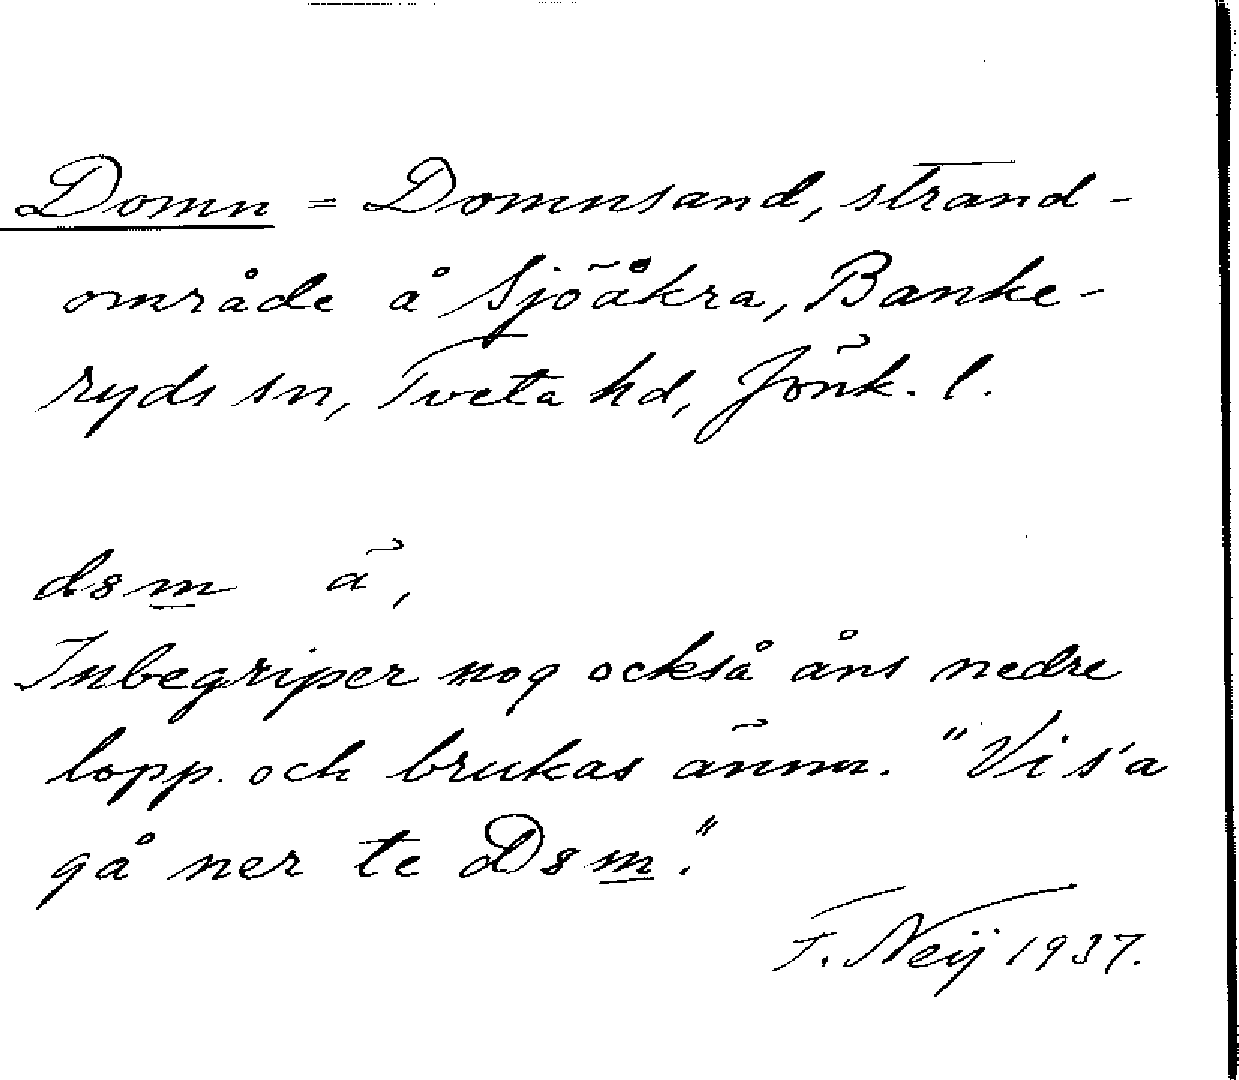 Domn = Domnsand, strand-
område å Sjöåkra, Banke-
ryds sn, Tveta hd, Jönk. l.
ds<u>m</u> ä,
Inbegriper nog också åns nedre
lopp. och brukas ännu. "Vi s'a
gå ner te Ds<u>m</u>."
F. Neij 1937.